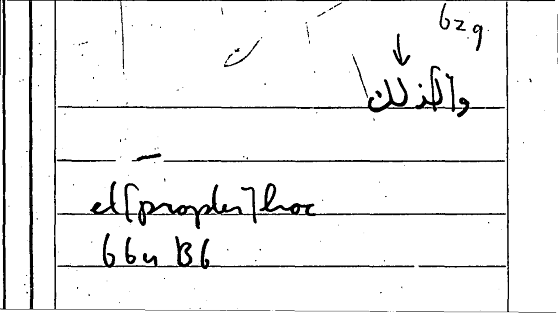 629
و[ل]ذلك
et [propter] hoc
664 B6